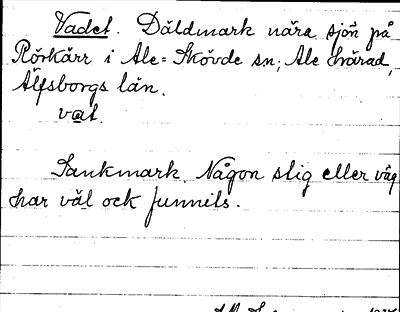 Vadet. Däldmark nära sjön på
Rörkärr i Ale-Skövde sn; Ale härad,
Älfsborgs län.
vat.
Sankmark. Någon stig eller väg
har väl ock funnits.